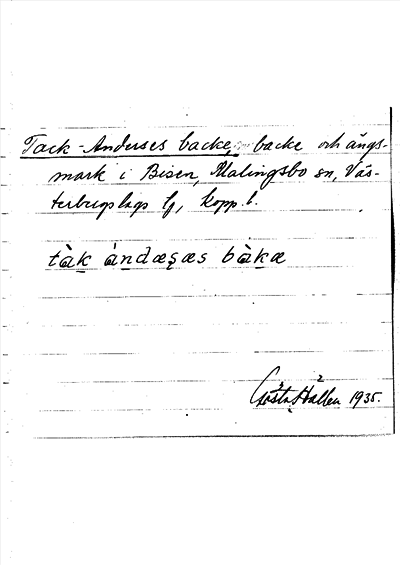 Tack-Anderses backe, backe och ängs-
mark i Bisen, Malingsbo sn, Väs-
terbergslags lj, Kopp. l.
tàk ándæșæs bàkæ
Gösta Hallen 1935.